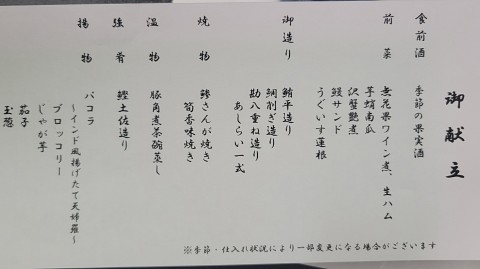 御献立
食前酒 季節の果実酒
前菜 無花果ワイン煮、生ハム
芋蛸南瓜
沢蟹艶煮
鰻サンド
うぐいす蓮根
御造り 鮪平造り
鯛削ぎ造り
勘八重ね造り
あしらい一式
焼物 鰺さんが焼き
筍香味焼き
温物 豚角煮茶碗蒸し
強肴 鰹土佐造り
揚物 パコラ
～インド風揚げたて天婦羅～
ブロッコリー
じゃが芋
茄子
玉葱
※季節・仕入れ状況により一部変更になる場合がございます